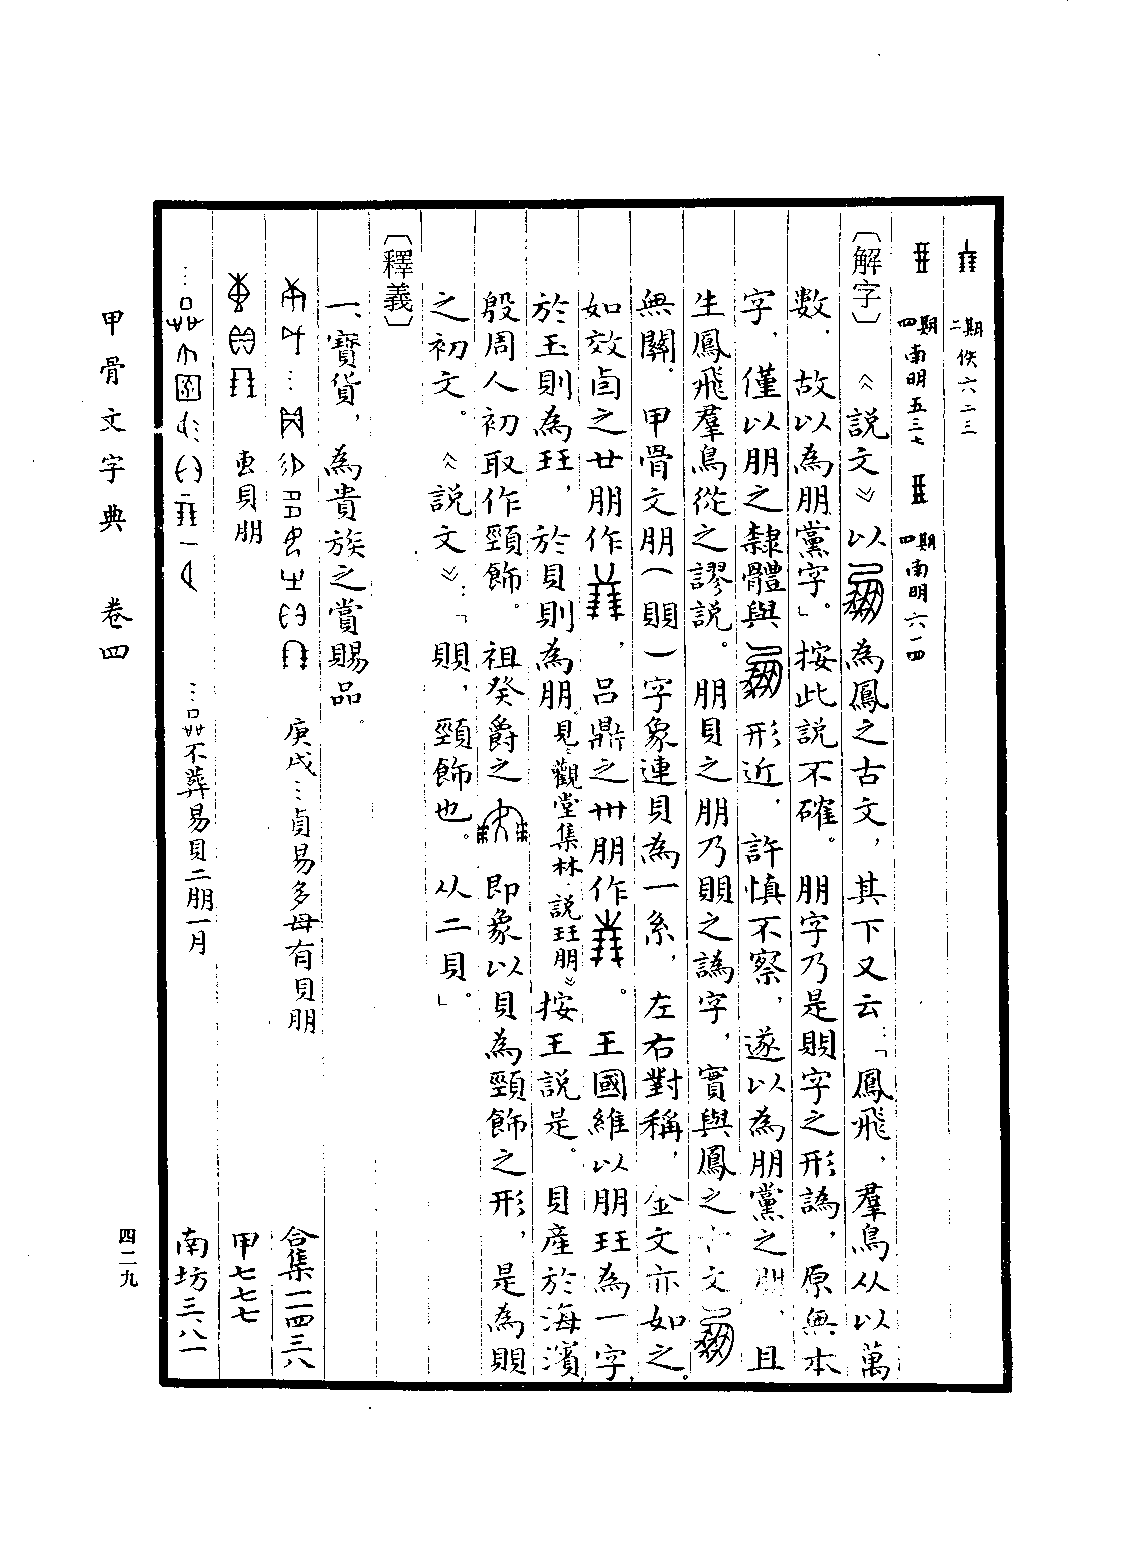 二期佚六二三
四期南明五三七　四期南明六一四
〔解字〕《說文》以為鳳之古文，其下又云：「鳳飛，羣鳥从以萬
數，故以為朋黨字。」按此說不確。朋字乃是賏字之形譌，原無本
字，僅以朋之隸體與形近，許慎不察，遂以為朋黨之朋，且
生鳳飛羣鳥從之謬說。朋貝之朋乃賏之譌字，實與鳳之文
無關。甲骨文朋（賏）字象連貝為一系，左右對稱，金文亦如之。
如效卣之廿朋作，呂鼎之卅朋作。王國維以朋玨為一字，
於玉則為玨，於貝則為朋。見《觀堂集林·說玨朋》按王說是。貝產於海濱，
殷周人初取作頸飾。祖癸爵之即象以貝為頸飾之形，是為賏
之初文。《說文》：「賏，頸飾也。从二貝。」
〔釋義〕
一、寶貨，為貴族之賞賜品。
庚戌…貞易多母有貝朋　合集一一四三八
叀貝朋　甲七七七
…品不葬易貝二朋一月　南坊三·八一
甲骨文字典　卷四
四二九